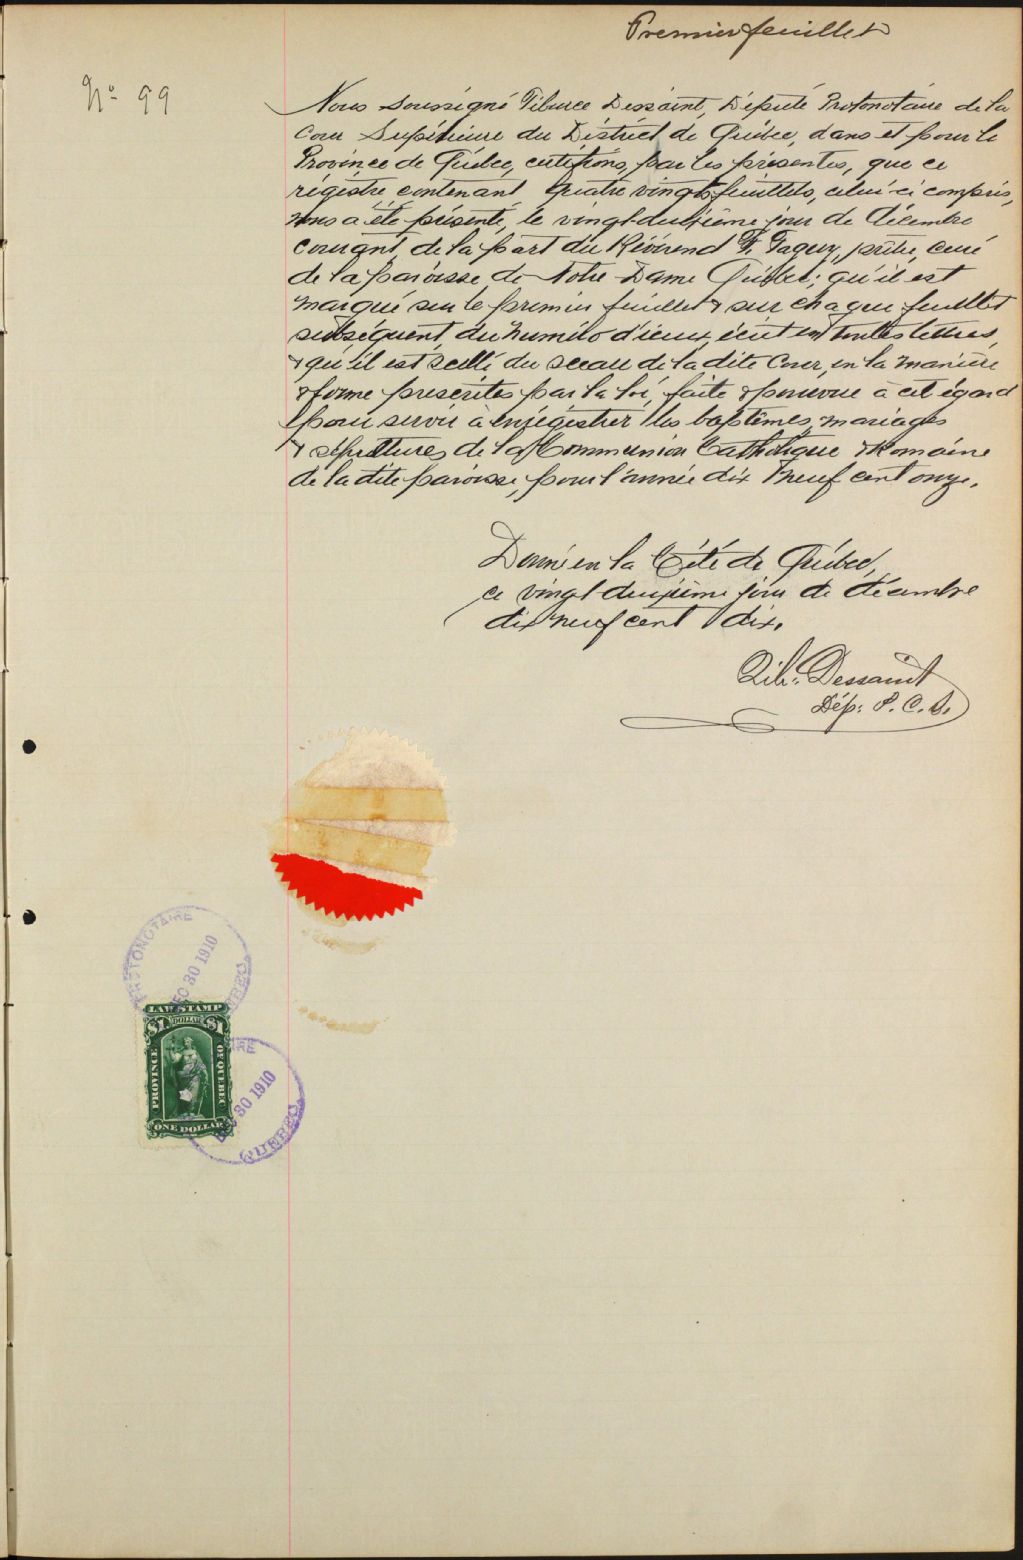 Premier feuillet
No 99
Nous soussigné Tiburce Dessaint, Député Protonotaire de la
Cour Supérieure du District de Québec, dans et pour la
Province de Québec, certifions, par les présentes, que ce
régistre contenant quatre vingts feuillets, celui-ci compris,
nous a été présenté, le vingt-deuxième jour de décembre
courant, de la part du Révérend F. Faguy, prêtre, curé
de la paroisse de Notre Dame Québec; qu'il est
marqué sur le premier feuillet & sur chaque feuillet
subséquent, du numéro d'iceux, écrit en toutes lettres,
& qu'il est scellé du sceau de la dite Cour, en la manière
& forme prescrites par la loi, faite & pourvue à cet égard
pour servir à enrégistrer les baptêmes, mariages
& sépultures de la Communion Catholique & Romaine
de la dite paroisse, pour l'année dix neuf cent onze.
Donné en la Cité de Québec,
ce vingt deuxième jour de décembre
dix neuf cent dix.
Tib. Dessaint
Dép: P. C. S.
PROTONOTAIRE
DEC 30 1910
QUEBEC
LAW STAMP
$1 DOLLAR $1
PROVINCE OF QUEBEC
ONE DOLLAR
DEC 30 1910
QUEBEC